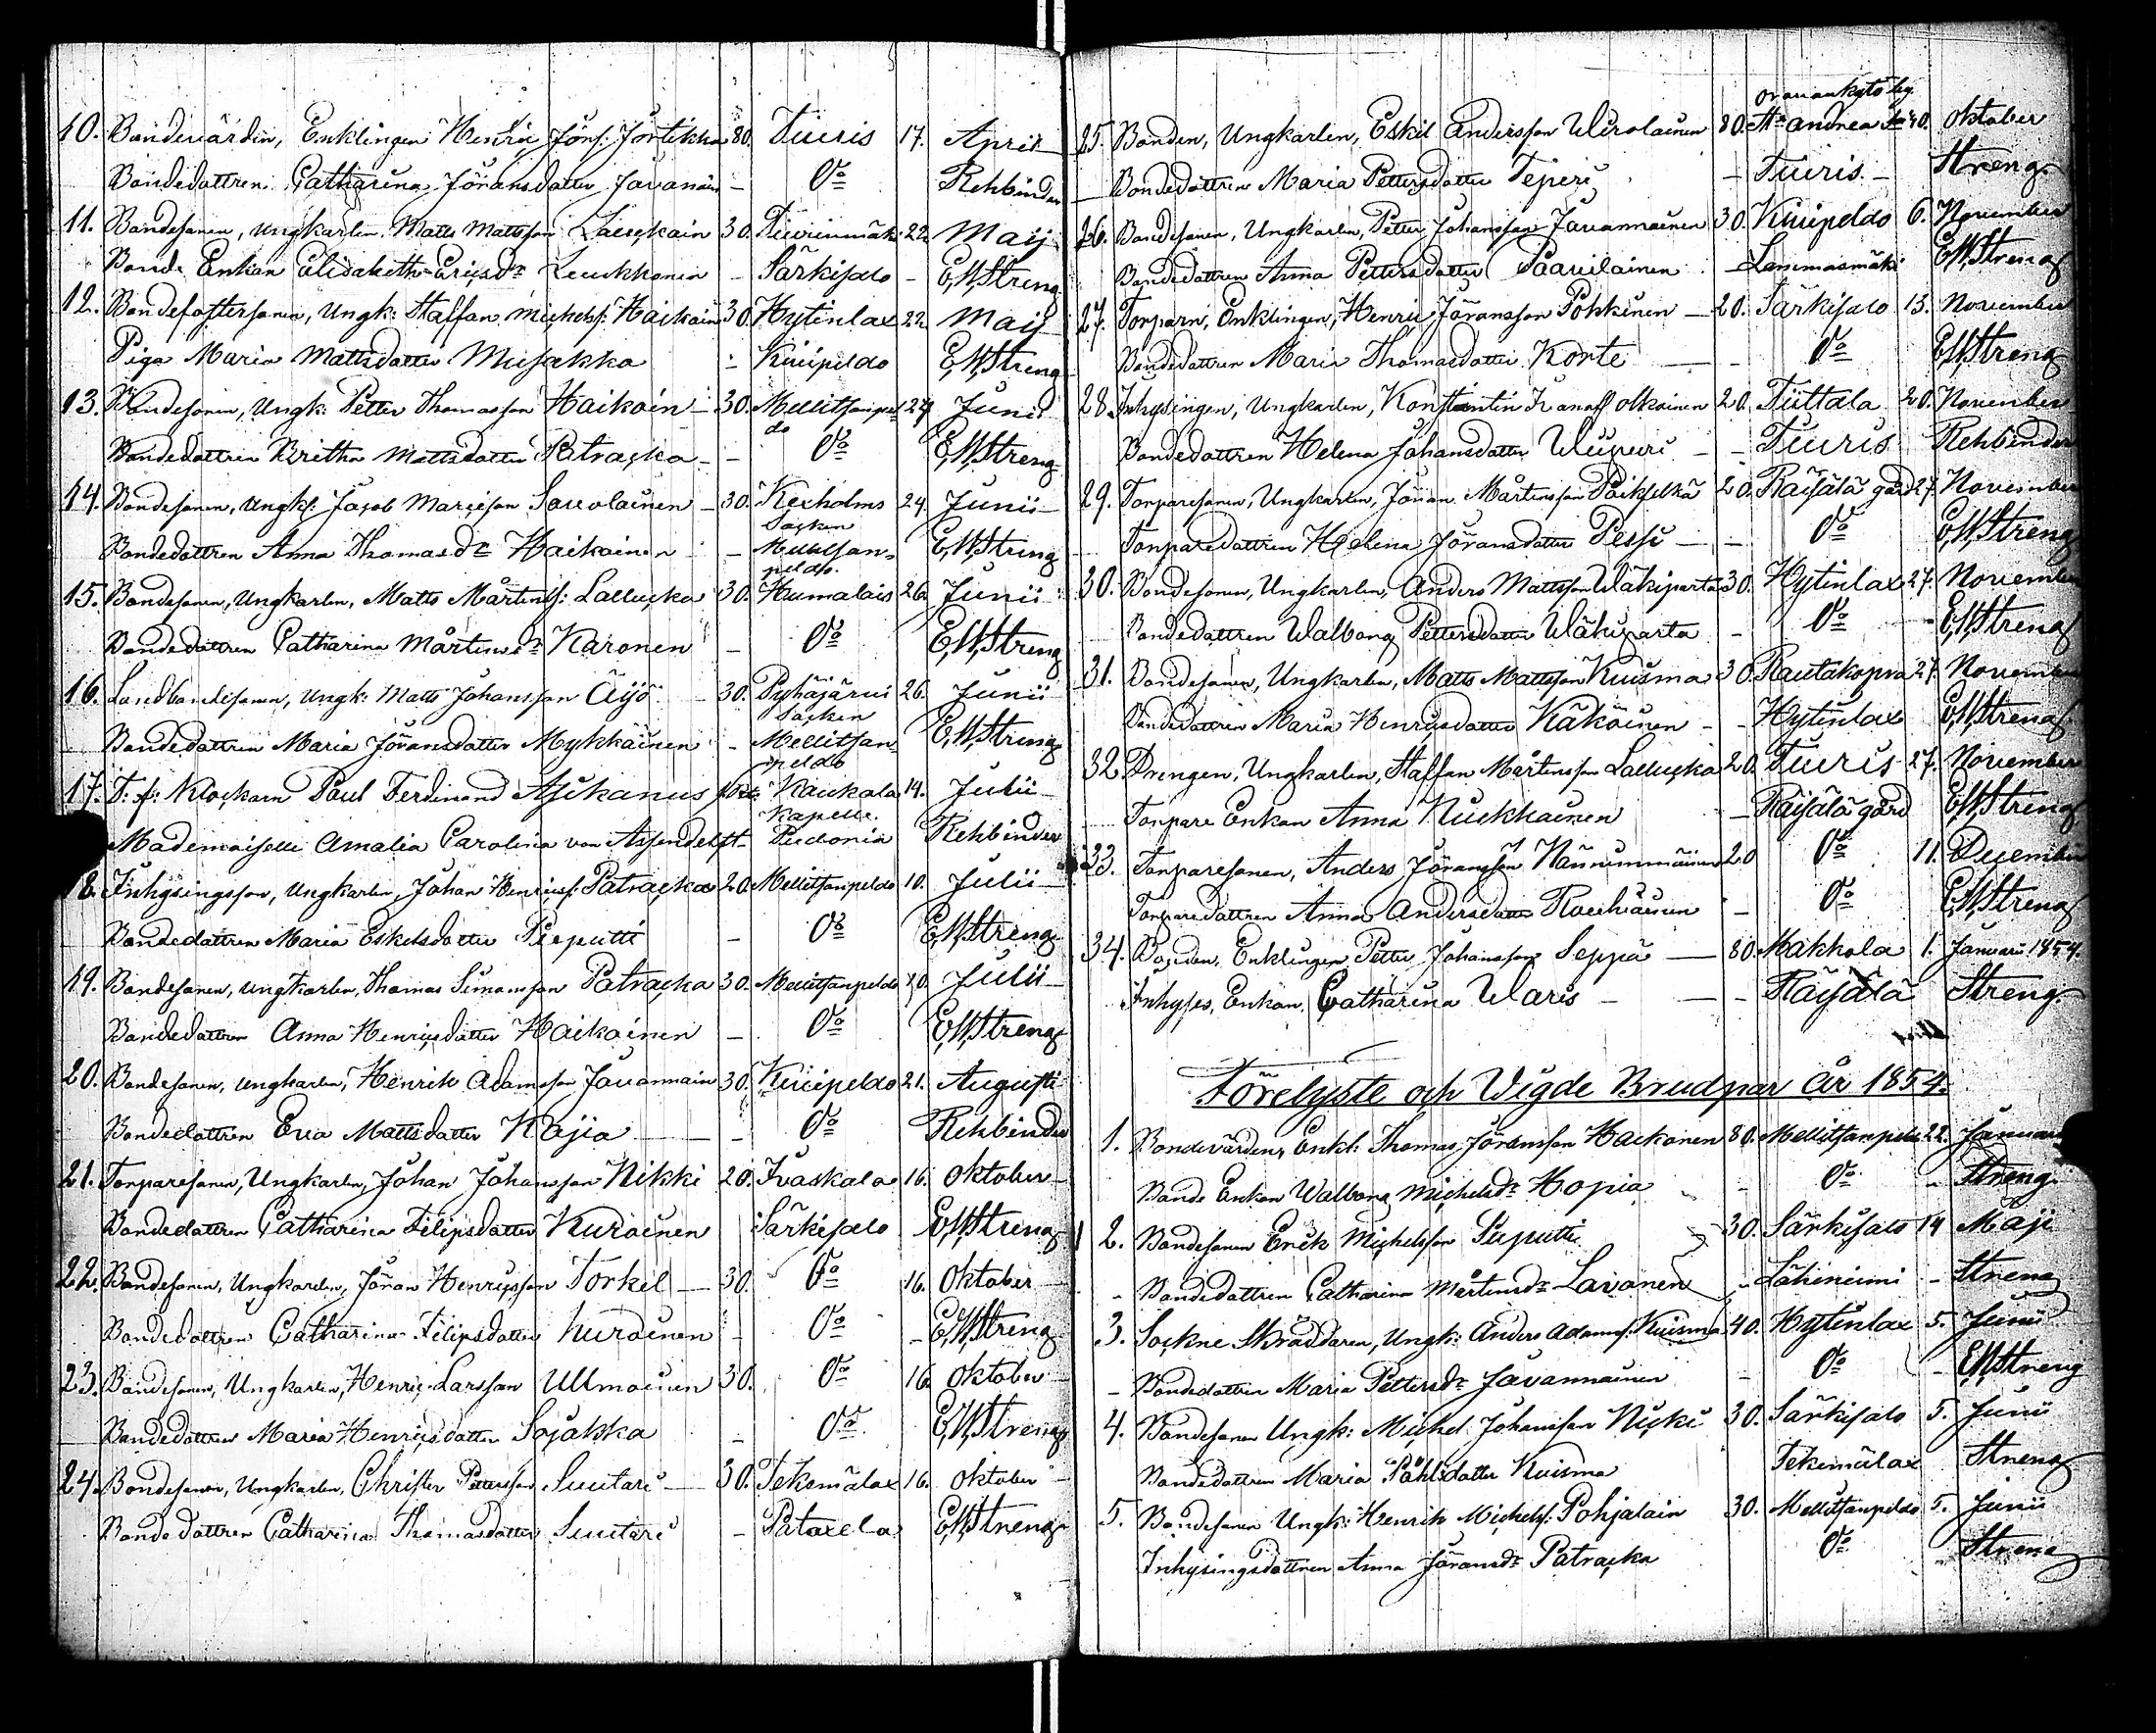 10. Bondevärden, Enklingen Henric Jörs: Jortikka 80. Tiuris 17. April
Bondedottren Catharina Jöransdotter Javanain - Do Rehbinder
11. Bondesonen, Ungkarlen Matts Mattsson Laukain 30. 22. Maij
Bonde Enkan Elisabeth Ericsdr Leukkonen - Särkisalo - E,W,Streng
12. Bondefostersonen, Ungk: Staffan Michelsf: Haikain 30. Hytinlax 22. Maij
Piga Maria Mattsdotter Musakka - Kiiipeldo E,W,Streng
13. Bondesonen, Ungk: Petter Thomasson Haikoin - 30. Mellitsanpel 24 Junii
do
Bondedottren Britha Mattsdotter Patracka - - Do E,W,Streng
14. Bondesonen, Ungk: Jacob Marcisson Savolainen - 30. Kexholms 24. Junii
Socken
Bondedottren Anna Thomasdr Haikainen - Mellitsan- E,W,Streng
peldo.
15. Bondesonen, Ungkarlen, Matts Mårtensf: Lallucka 30. Humalais 26. Junii
Bondedottren Catharina Mårtensdr Karonen - Do E,W,Streng
16. Landbondesonen, Ungk: Matts Johansson Äijö - 30. Pyhäjärvi 26. Junii
Socken
Bondedottren Maria Jöransdotter Mykkäinen - Mellitsan- E,W,Streng
peldo
17. T: f: Klockarn Paul Ferdinand Kaukola 14. Julii
Kapell.
Mademoiselle Amalia Carolina von Assendelft - Rehbinder
18. Inhysingsson, Ungkarlen, Johan Henricsf: Patracka 20. Mellitsanpeldo 10. Julii
Bondedottren Maria Eskelsdotter Pieputti - Do E,W,Streng
19. Bondesonen, Ungkarlen, Thomas Simonsson Patracka 30. Mellitsanpeldo 10. Julii
Bondedottren Anna Henricsdotter Haikoinen - Do E,W,Streng
20. Bondesonen, Ungkarlen, Henrik Adamsson Javannain 30. Kiiipeldo 21. Augusti
Bondedottren Eva Mattsdotter Kojia - Do Rehbinder
21. Torparesonen, Ungkarlen, Johan Johansson Nikki 20. Ivaskala 16. Oktober
Bondedottren Catharina Filipsdotter Kuroinen Särkisalo E,W,Streng
22. Bondesonen, Ungkarlen, Jöran Henricsson Torkel - 30. Do 16. Oktober
Bondedottren Catharina Filipsdotter Kuroinen - Do E,W,Streng
23. Bondesonen, Ungkarlen, Henric Larsson Ullmainen 30. Do 16. Oktober
Bondedottren Maria Henricsdotter Sojakka - Do E,W,Streng
24. Bondesonen, Ungkarlen, Christer Pettersson Suutari - 30. Teksmälax 16. Oktober
Bondedottren Catharina Thomasdotter Suutari - Pataxela E,W,Streng
25. Bonden, Ungkarlen, Eskil Andersson Wirolainen 80. St: Andrea Sn 30. Oktober
Bondedottren Maria Pettersdotter Teperi - Tiuris. - Streng
26. Bondesonen, Ungkarlen, Petter Johansson Javannainen 30. Kiiipeldo 6. November
Bondedottren Anna Pettersdotter Paavilainen - Lammasmäki E,W,Streng
27. Torparn, Enklingen, Henric Jöransson Pohkinen - 20. Särkisalo 13. November
Bondedottren Maria Thomasdotter Korte - Do E,W,Streng
28. Inhysingen, Ungkarlen, Konstantin 20. Tiittala 20. November
Bondedottren Helena Johansdotter Wiipuri - Tiuris Rehbinder
29. Torparesonen, Ungkarlen, Jöran Mårtensson Poikselkä 20. Räisälä gård 27. November
Torparedottren Helena Jöransdotter Pessi - Do E,W,Streng
30. Bondesonen, Ungkarlen, Anders Mattsson Wäkiparta 30. Hytinlax 27. November
Bondedottren Walborg Pettersdotter Wäkiparta - Do - E,W,Streng
31. Bondesonen, Ungkarlen, Matts Mattsson Kuisma 30. Rautakopra 27. November
Bondedottren Maria Henricsdotter Käköinen - - Hytinlax E,W,Streng
32. Drengen, Ungkarlen, Staffan Mårtensson Lallucka 20. Tiuris 27. November
Torpare Enkan Anna Kiukkainen - Räisälä gård E,W,Streng
33. Torparesonen, Anders Jöransson 20 Do 11. December
Torparedottren Anna Andersdotter Rouhiainen - Do E,W,Streng
34. Bonden, Enklingen Petter Johansson Seppä - 80. Makkola 1. Januari 1854.
Inhyses, Enkan, Catharina Waris - - Räisälä Streng
Förelyste och Vigde Brudpar år 1854.
1. Bondevärden, Enkl: Thomas Jöransson Haikonen 80. Mellitsanpeldo 22. Januari
Bonde Enkan Walborg Michelsdr Hopia - Do - Streng
2. Bondesonen Erik Michelsson Pieputti 30. Särkisalo 14 Maji
- Bondedottren Catharina Mårtensdr Lavonen - Lähiniemi - Streng
3. Sockne Skräddaren, Ungk: Anders Adamsf: Kuisma 40. Hytinlax 5. Junii
- Bondedottren Maria Pettersdr Javannainen - Do - E,W,Streng
4. Bondesonen Ungk: Michel Johansson Nicki 30. Särkisalo 5. Junii
Bondedottren Maria Påhlsdotter Kuisma Tekimälax Streng
5. Bondesonen Ungk: Henrik Michelsf: Pohjalain 30. Mellitsanpeldo 5. Junii
Inhysingsdottren Anna Jöransdr Patracka Do Streng